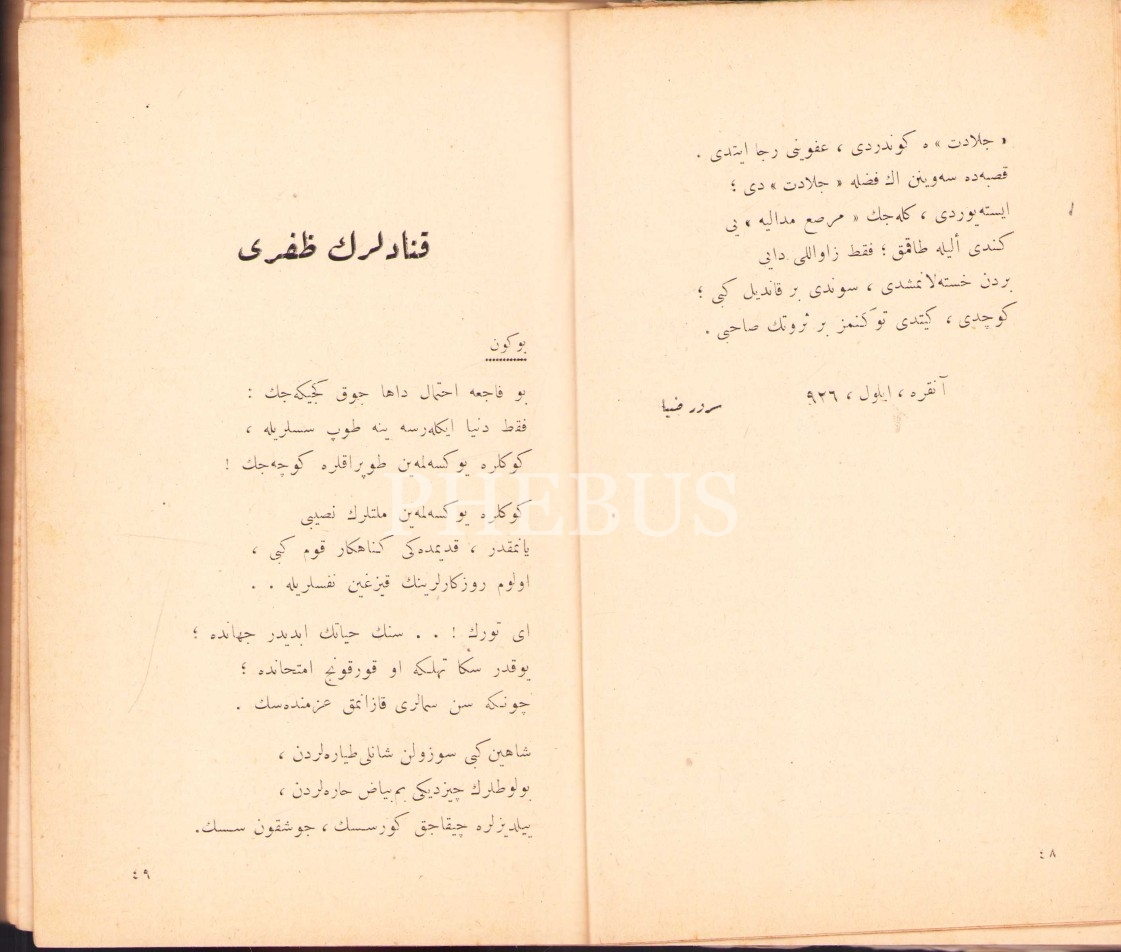 « جلادت » ه كوندردی ، عفوینی رجا ایتدی .
قصبه‌ده سه‌وینن اك فضله « جلادت » دی ؛
ایسته‌یوردی ، كله‌جك « مرصع مدالیه » یی
كندی ألیله طاقمق ؛ فقط زاواللی دایی
بردن خسته‌لانمشدی ، سوندی بر قاندیل كبی ؛
كوچدی ، كیتدی توكنمز بر ثروتك صاحبی .
آنقره ، ایلول ، ٩٢٦
سرور ضیا
٤٨
قنادلرك ظفری
بوكون
بو فاجعه احتمال داها چوق كجیكه‌جك :
فقط دنیا ایكله‌رسه ینه طوپ سسلریله ،
كوكلره یوكسه‌لمه‌ین طوپراقلره كوچه‌جك !
كوكلره یوكسه‌لمه‌ین ملتلرك نصیبی
یانمقدر ، قدیمده‌كی كناهكار قوم كبی ،
اولوم روزكارلرینك قیزغین نفسلریله . .
ای تورك ! . . سنك حیاتك ابدیدر جهانده ؛
یوقدر سكا تهلكه او قورقونج امتحانده ؛
چونكه سن سمالری قازانمق عزمنده‌سك .
شاهین كبی سوزولن شانلی طیاره‌لردن ،
بولوطلرك چیزدیكی بم‌بیاض حاره‌لردن ،
ییلدیزلره چیقاجق كورسسك ، جوشقون سسك.
٤٩
PHEBUS